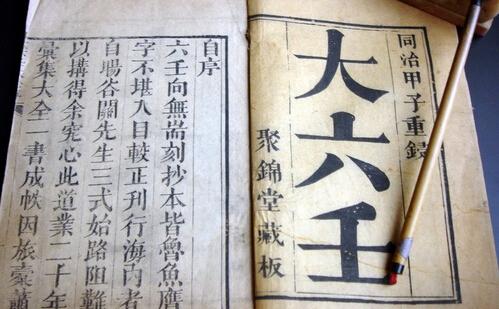 同治甲子重鐫
大六壬
聚錦堂藏板
自序
六壬向無耑刻抄本皆魯魚
字不堪入目較正刊行海內者
自暘谷關先生三式始路阻難
以搆得余究心此道業二十年
彙集大全一書成帙因旅橐蕭